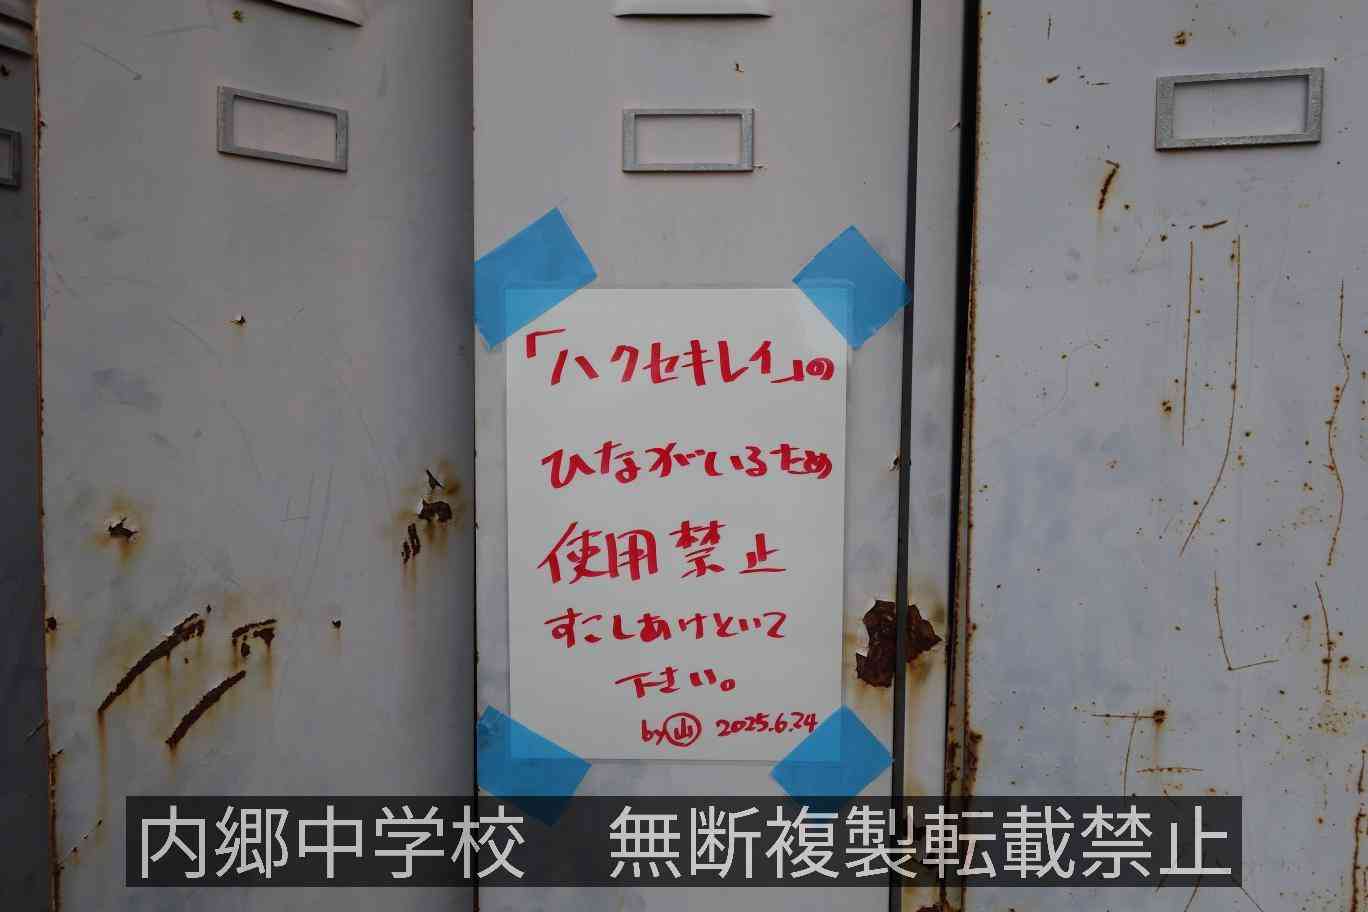 「ハクセキレイ」の
ひながいるため
使用禁止
すこしあけといて
下さい。
by㊤山 2025.6.24
内郷中学校 無断複製転載禁止